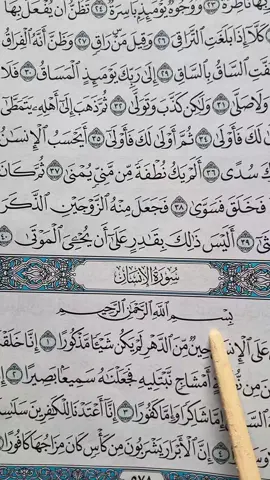 هَا نَاظِرَةٌ ٢٣ وَوُجُوهٌ يَوْمَئِذٍ بَاسِرَةٌ ٢٤ تَظُنُّ أَن يُفْعَلَ بِهَا
كَلَّا إِذَا بَلَغَتِ التَّرَاقِيَ ٢٦ وَقِيلَ مَنْ رَاقٍ ٢٧ وَظَنَّ أَنَّهُ الْفِرَاقُ
السَّاقُ بِالسَّاقِ ٢٩ إِلَىٰ رَبِّكَ يَوْمَئِذٍ الْمَسَاقُ ٣٠ فَلَا
وَلَا صَلَّىٰ ٣١ وَلَٰكِن كَذَّبَ وَتَوَلَّىٰ ٣٢ ثُمَّ ذَهَبَ إِلَىٰ أَهْلِهِ يَتَمَطَّىٰ
لَكَ فَأَوْلَىٰ ٣٤ ثُمَّ أَوْلَىٰ لَكَ فَأَوْلَىٰ ٣٥ أَيَحْسَبُ الْإِنسَٰنُ
سُدًى ٣٦ أَلَمْ يَكُ نُطْفَةً مِّن مَّنِيٍّ يُمْنَىٰ ٣٧ ثُمَّ كَانَ
فَخَلَقَ فَسَوَّىٰ ٣٨ فَجَعَلَ مِنْهُ الزَّوْجَيْنِ الذَّكَرَ
٣٩ أَلَيْسَ ذَٰلِكَ بِقَٰدِرٍ عَلَىٰ أَن يُحْـِۧيَ الْمَوْتَىٰ ٤٠
سُورَةُ الْإِنسَانِ
بِسْمِ اللَّهِ الرَّحْمَٰنِ الرَّحِيمِ
عَلَى الْإِنسَٰنِ حِينٌ مِّنَ الدَّهْرِ لَمْ يَكُن شَيْـًٔا مَّذْكُورًا ١ إِنَّا خَلَقْنَا
مِن نُّطْفَةٍ أَمْشَاجٍ نَّبْتَلِيهِ فَجَعَلْنَٰهُ سَمِيعًۢا بَصِيرًا ٢
إِمَّا شَاكِرًا وَإِمَّا كَفُورًا ٣ إِنَّا أَعْتَدْنَا لِلْكَٰفِرِينَ
٤ إِنَّ الْأَبْرَارَ يَشْرَبُونَ مِن كَأْسٍ كَانَ مِزَاجُهَا كَافُورًا
٥٧٨